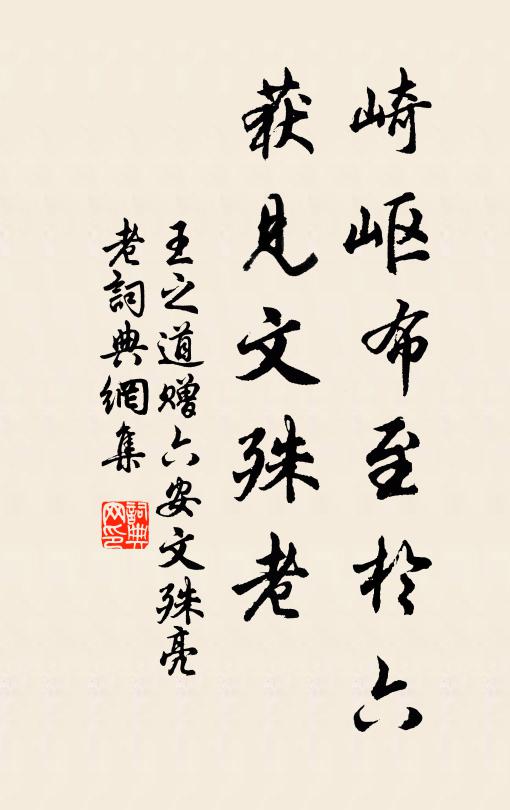 崎岖布至於六
获見文殊老
王之道赠六安文殊亮
老詞典網集
詞典网印